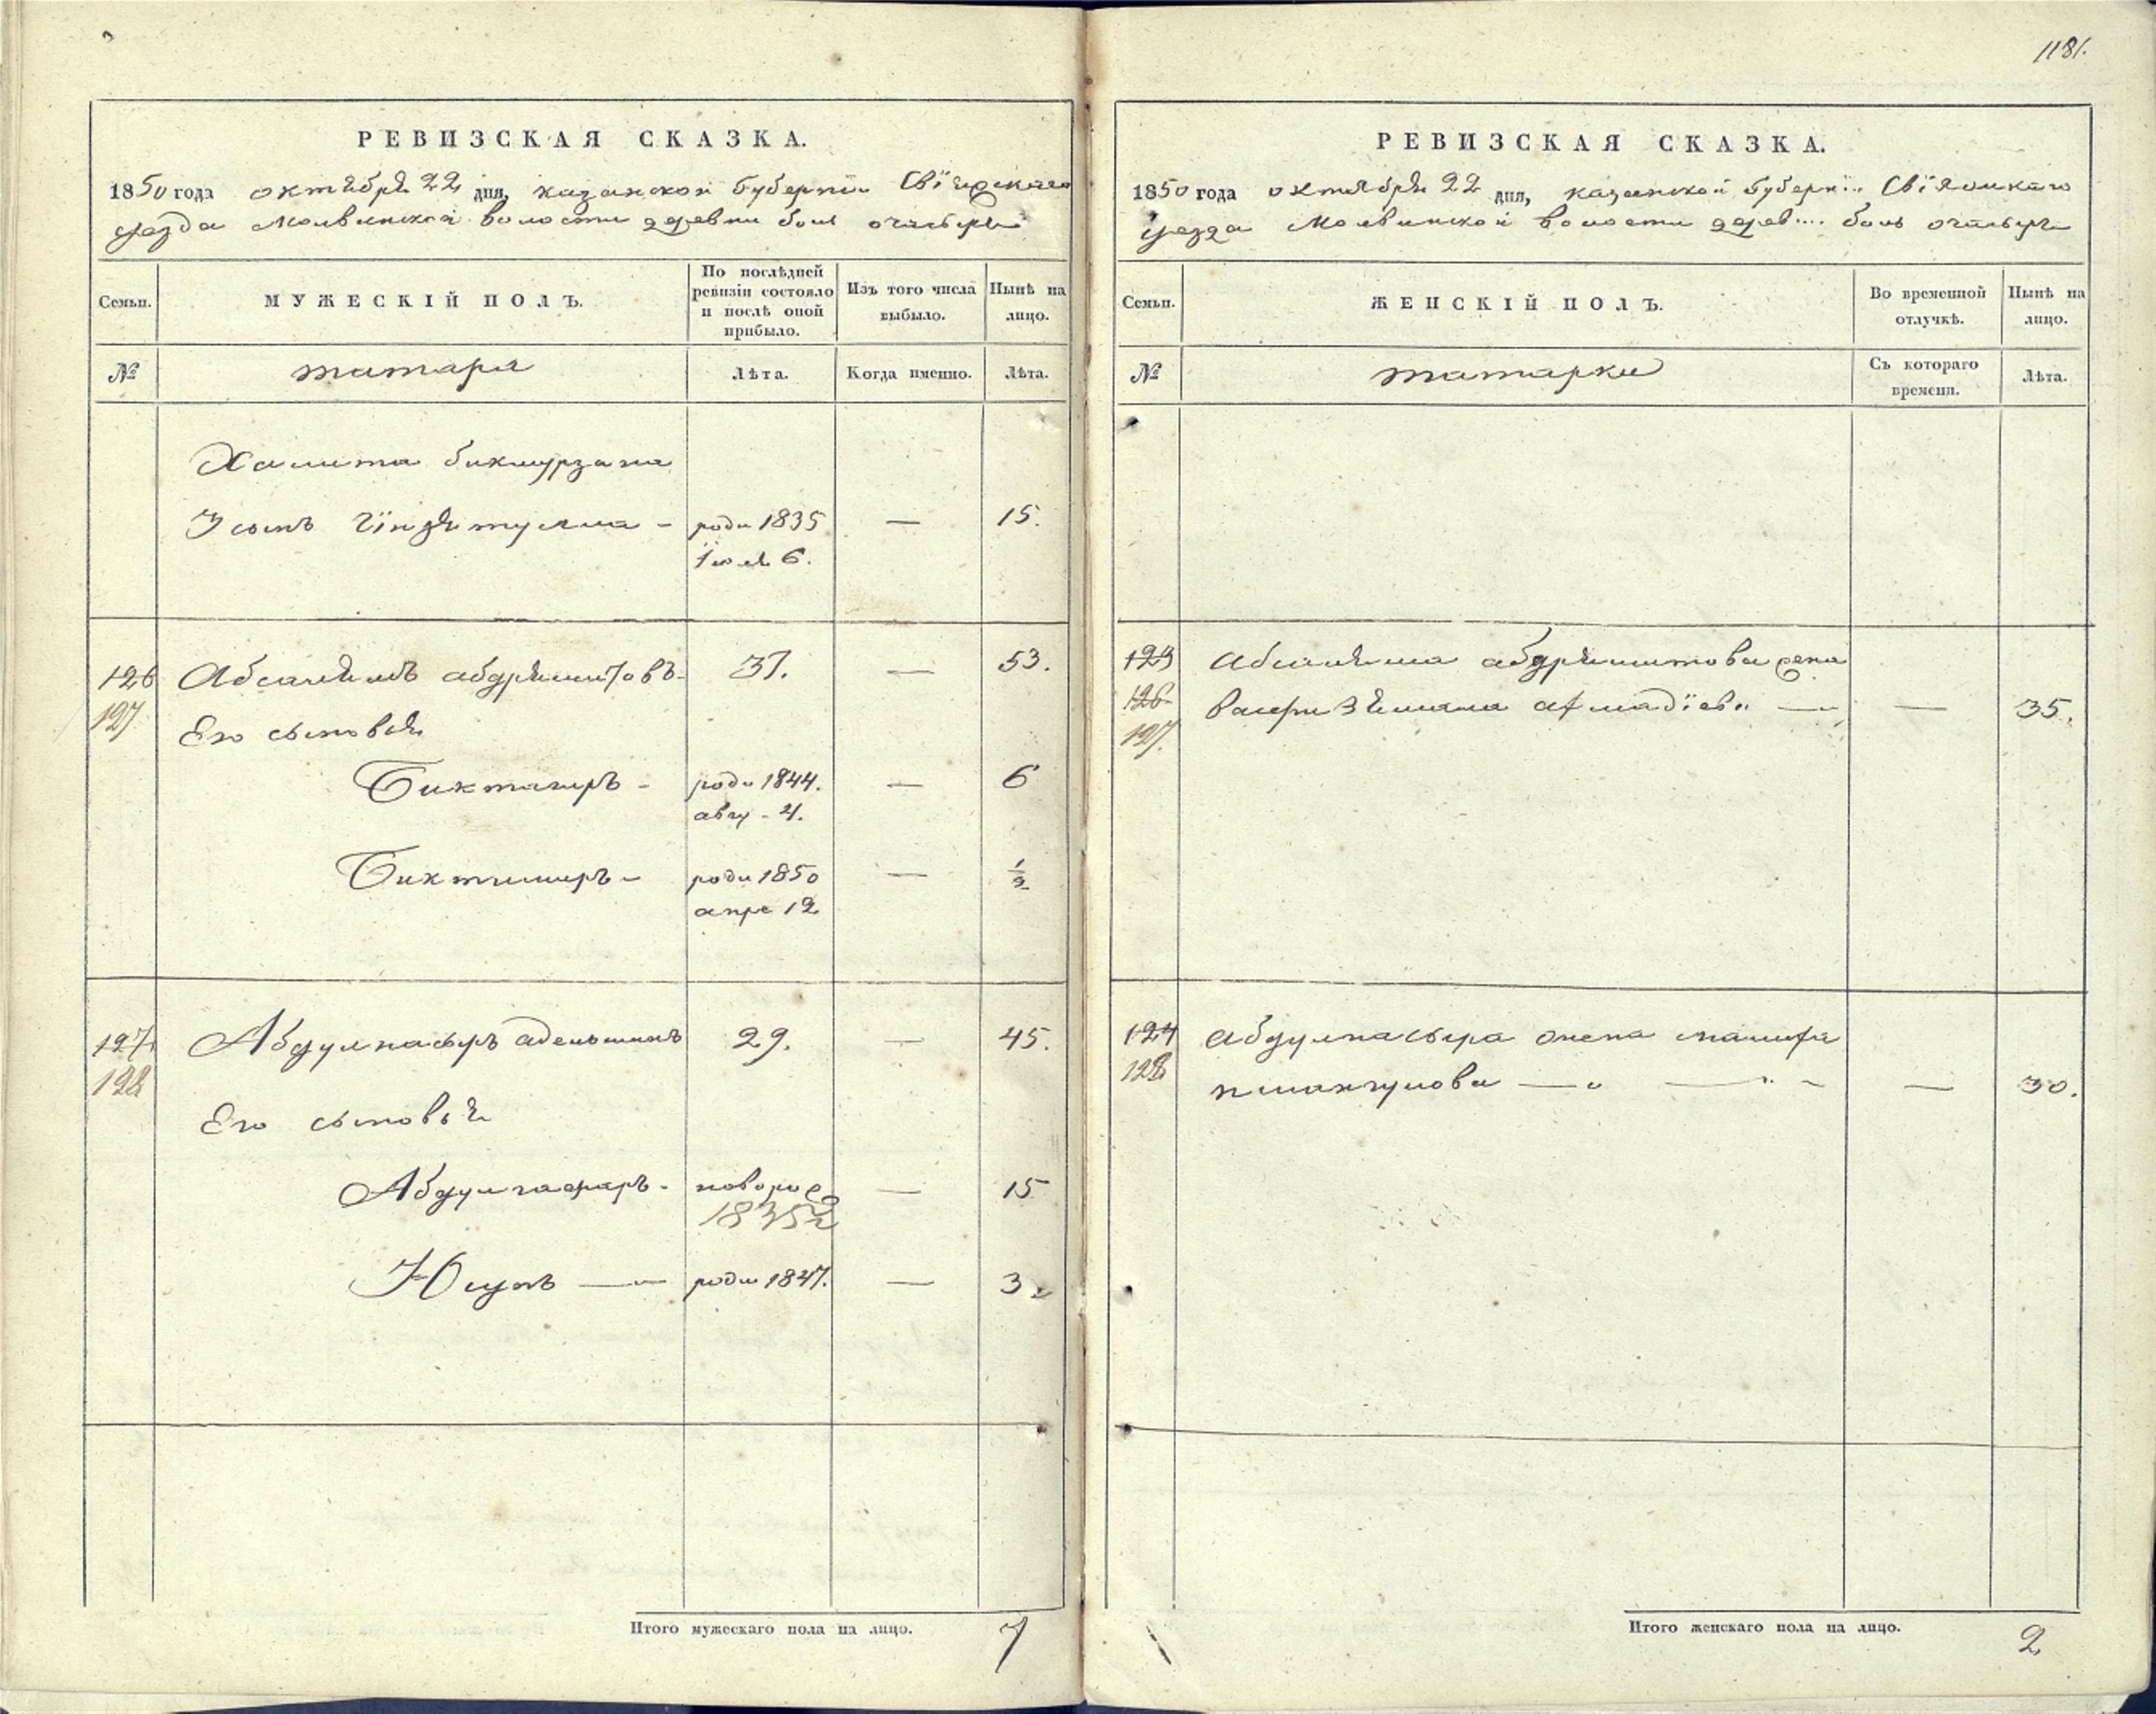 1181.
РЕВИЗСКАЯ СКАЗКА.
1850 года октября 22 дня, казанской губернии Свіяжскаго
уезда Молвинской волости деревни бол
МУЖЕСКІЙ ПОЛЪ.
Семьи.
По послѣдней ревизіи состояло и послѣ оной прибыло.
Изъ того числа выбыло.
Нынѣ на лицо.
№
татара
Лѣта.
Когда именно.
Лѣта.
Халита бикмурзана
3 сынъ — роди 1835 — 15.
Іюля 6.
126 Абсалямъ абдряшитовъ 37. — 53.
127
Его сыновья
Биктагиръ - роди 1844. — 6
авгу - 4.
Биктимиръ - роди 1850 — 1/2
апре 12
127 Абдулнасыръ 29. — 45.
128
Его сыновья
Абдулгафаръ - новорож — 15
1835
Юсупъ — роди 1847. — 3
Итого мужескаго пола на лицо. 7
РЕВИЗСКАЯ СКАЗКА.
1850 года октября 22 дня, казанской губерніи Свіяжскаго
уезда Молвинской волости дерев... бол
Семьи.
ЖЕНСКІЙ ПОЛЪ.
Во временной отлучкѣ.
Нынѣ на лицо.
№
татарки
Съ котораго времени.
Лѣта.
123 Абсаляма абдряшитова жена
126 — — 35.
127
124 Абдулнасыра жена
128 — — 30.
Итого женскаго пола на лицо. 2